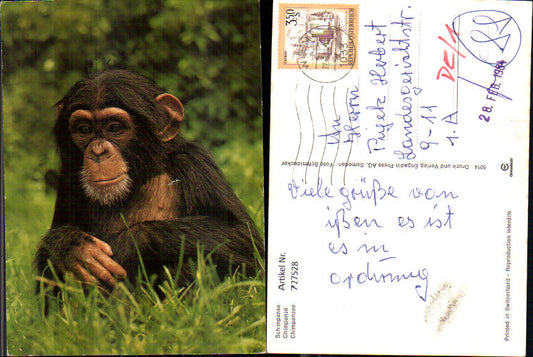 3.50
REPUBLIK ÖSTERREICH
1035
An
Herrn
Landesgerichtsstr.
9-11
1. A
DE/1
28. FEB. 1984
Viele grüße von
ißen es ist
es in
ordnung
5014 Druck und Verlag Engadin Press AG, Samedan Foto Schmidecker
Artikel Nr.
727528
Schimpanse
Chimpanzé
Chimpanzee
Printed in Switzerland - Reproduction interdite